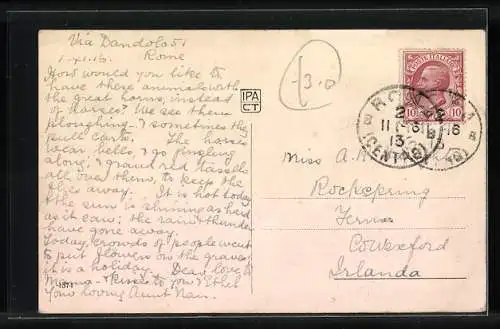 Via Dandolo 51
1-XI.16. Rome
How would you like to
have these animals with
the great horns, instead
of horses? We see them
ploughing & sometimes they
pull carts. The horses
wear bells, & go jingling
along; & grand red tassells
all over them, to keep the
flies away. It is hot today
& the sun is shining as hard
as it can: the rain & thunder
have gone away.
Today, crowds of people went
to put flowers on the graves
it is a holiday. Dear love to
Mama & kisses to you & Ethel
Your loving Aunt Nan.
1374
IPA
CT
-3.0
POSTE ITALIANE
10 10
ROMA
11 16
13
(CENTRO)
Miss A.
Rockspring
Ferns
Co Wexford
Irlanda